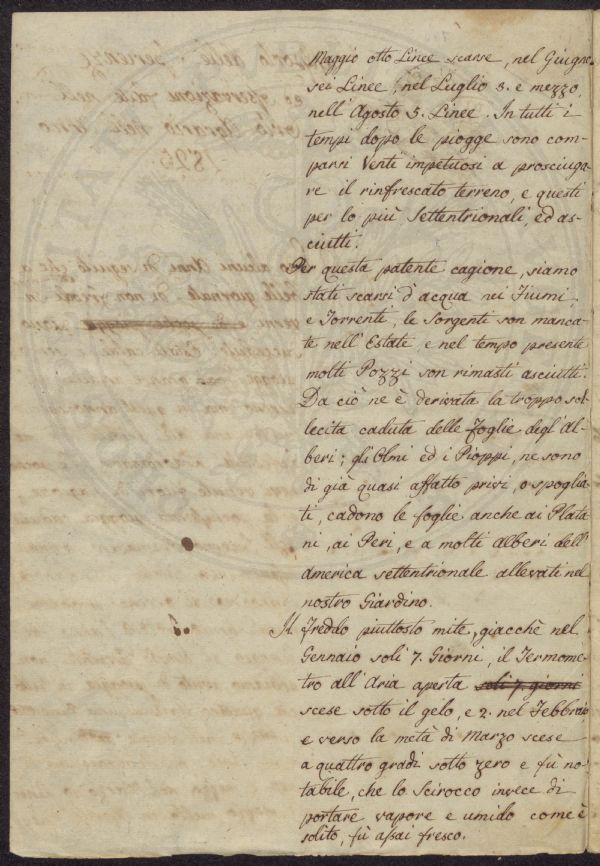 Maggio otto Linee scarse, nel Giugno
sei Linee, nel Luglio 3. e mezzo,
nell'Agosto 5. Linee. In tutti i
tempi dopo le piogge sono com-
parsi Venti impetuosi a prosciuga-
re il rinfrescato terreno, e questi
per lo più Settentrionali, ed as-
ciutti.
Per questa patente cagione, siamo
stati scarsi d'acqua nei Fiumi,
e Torrenti, le Sorgenti son manca-
te nell'Estate, e nel tempo presente
molti Pozzi son rimasti asciutti.
Da ciò ne è derivata la troppo sol-
lecita caduta delle Foglie degl'Al-
beri; gli Olmi ed i Pioppi, ne sono
di già quasi affatto privi, o spoglia-
ti, cadono le foglie anche ai Plata-
ni, ai Peri, e a molti Alberi dell'
America settentrionale allevati nel
nostro Giardino.
Il Freddo piuttosto mite, giacchè nel
Gennaio soli 7. Giorni, il Termome-
tro all'Aria aperta soli 7. giorni
scese sotto il gelo, e 2. nel Febbraio
e verso la metà di Marzo scese
a quattro gradi sotto zero e fù no-
tabile, che lo Scirocco invece di
portare vapore e umido come è
solito, fù assai fresco.